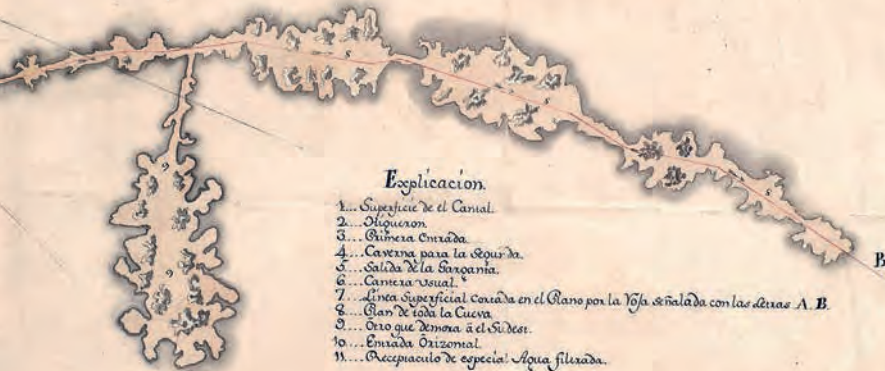 Explicacion.
1.... Superficie de el Cantal.
2.... Higueron
3.... Primera Entrada.
4.... Caverna para la Segunda.
5.... Salida de la Garganta.
6.... Cantera usual.
7.... Linea Superficial cortada en el Plano por la Roja señalada con las Letras A. B.
8.... Plan de toda la Cueva
9.... Otro que demora à el Sudest.
10.... Entrada Orizontal.
11.... Receptaculo de especial Agua filtrada.
B